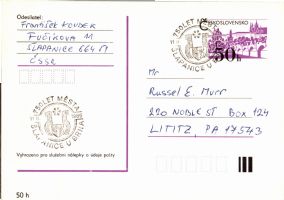 Odesílatel:
František KOUDEK
Fučíkova M
SLAPANICE 664 51
ČSSR
ČESKOSLOVENSKO
50h
750 LET MĚSTA
ŠLAPANICE U BRNA
Mr
Russel E. Murr
220 NOBLE ST BOX 124
LITITZ, PA 17543
750 LET MĚSTA
ŠLAPANICE U BRNA
Vyhrazeno pro služební nálepky a údaje pošty
50 h